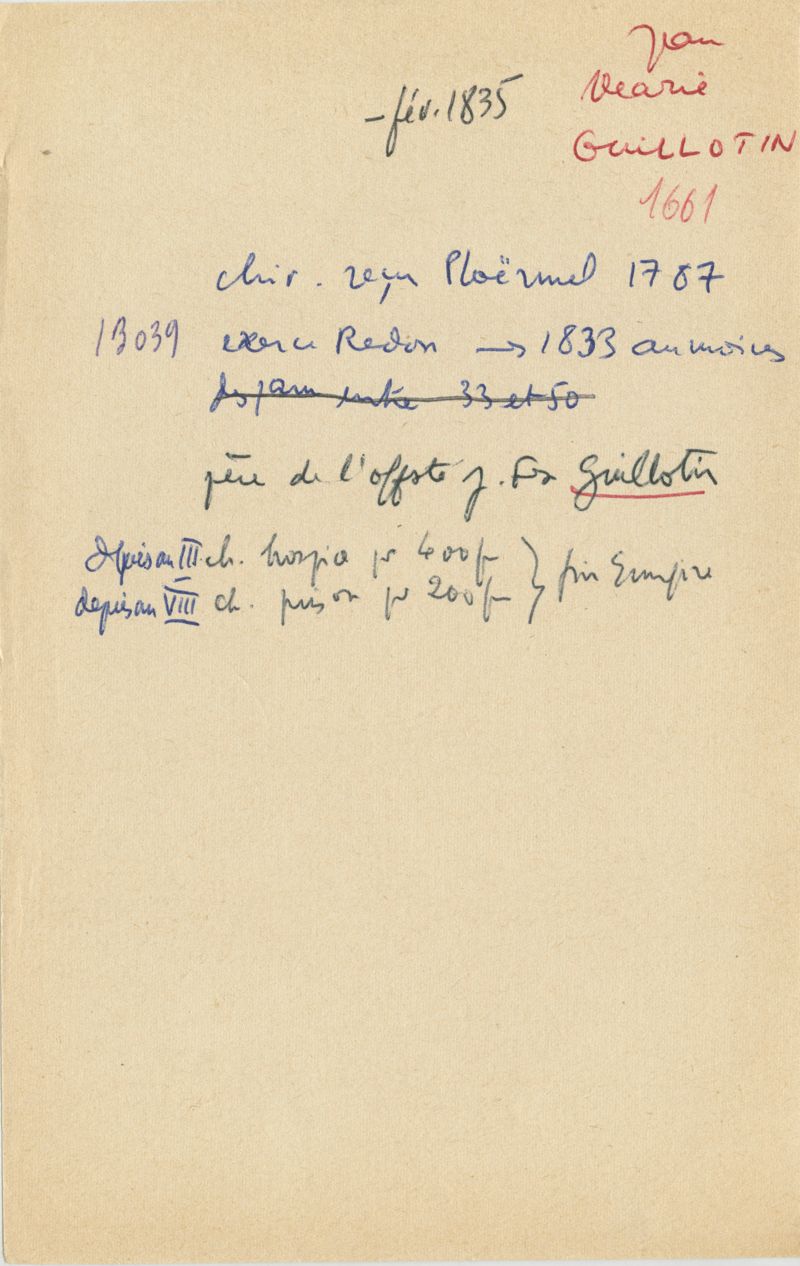 Jean
Marie
GUILLOTIN
– fév. 1835
1661
chir. reçu Ploërmel 1787
13039 exerce Redon → 1833 au moins
dispam entre 33 et 50
père de l'offste J. Fçs Guillotin
depuis an III ch. hospice pr 400 fr } fin Empire
depuis an VIII ch. prison pr 200 fr